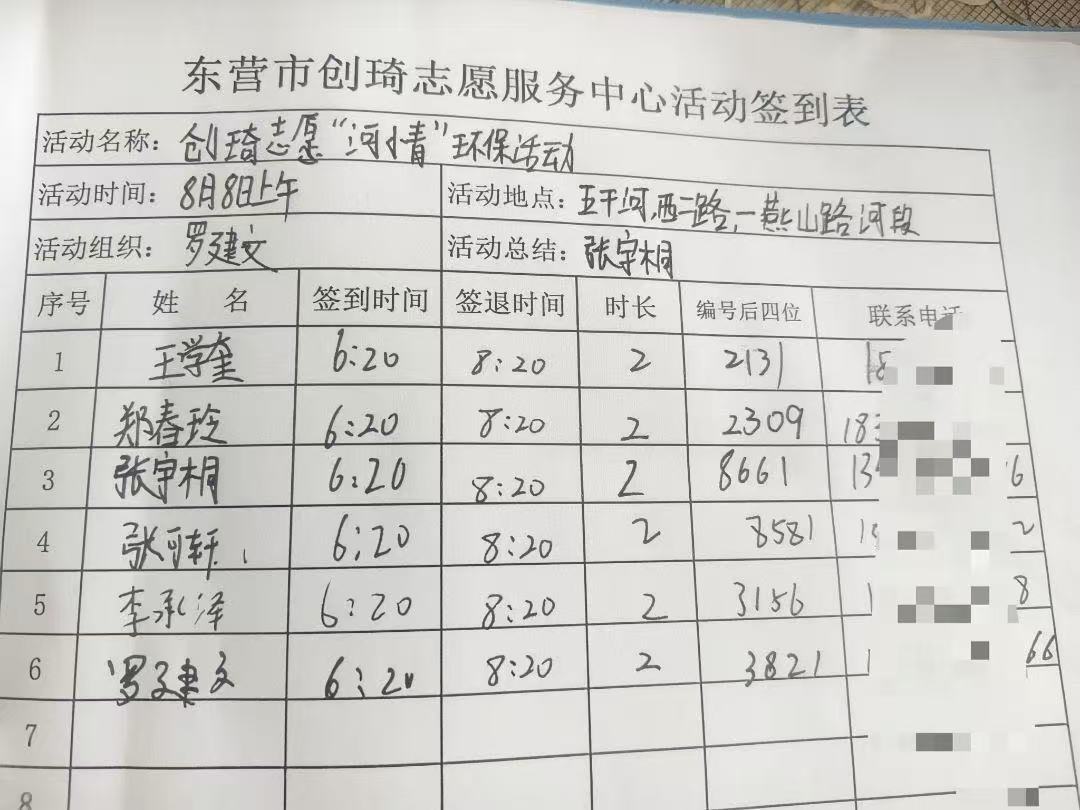 东营市创琦志愿服务中心活动签到表
活动名称：创琦志愿“河小青”环保活动
活动时间：8月8日上午 活动地点：五干河，西二路，一燕山路河段
活动组织：罗建文 活动总结：张宇桐
序号 姓 名 签到时间 签退时间 时长 编号后四位 联系电话
1 王学奎 6:20 8:20 2 2131 18
2 郑春玲 6:20 8:20 2 2309 183
3 张宇桐 6:20 8:20 2 8661 13 6
4 张可轩 6:20 8:20 2 8581 1 2
5 李承泽 6:20 8:20 2 3156 1 8
6 罗建文 6:20 8:20 2 3821 1 66
7
8